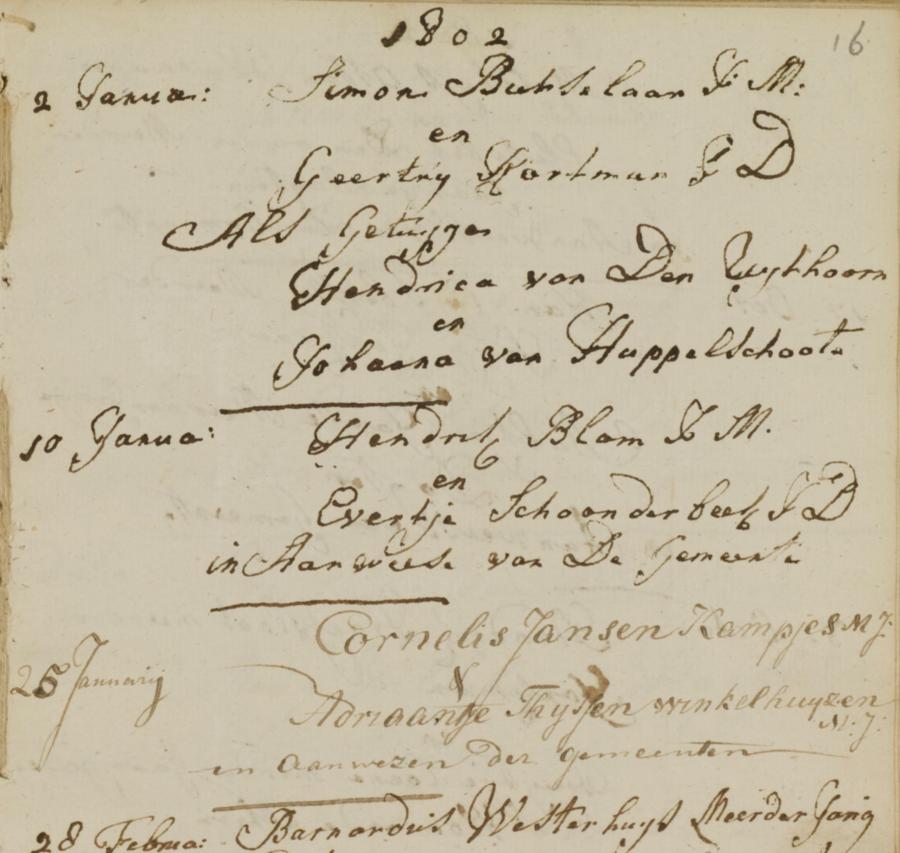 1802
16
2 Janua: Simon Butselaar J: M:
en
Geertry Kortman J D
Als Getuyge
Hendrica van Den Uythoorn
en
Johanna van Huppelschoote
10 Janua: Hendrik Blom J M.
en
Evertje Schoonderbeek J D
in Aanweese van De Gemeente
Cornelis Jansen Kampjes M J:
25 Januarij &
Adriaantje Thyssen winkelhuyzen
M: J:
in aanwezen der gemeenten
28 Februa: Barnardus Westerhuys Meerder Jarig